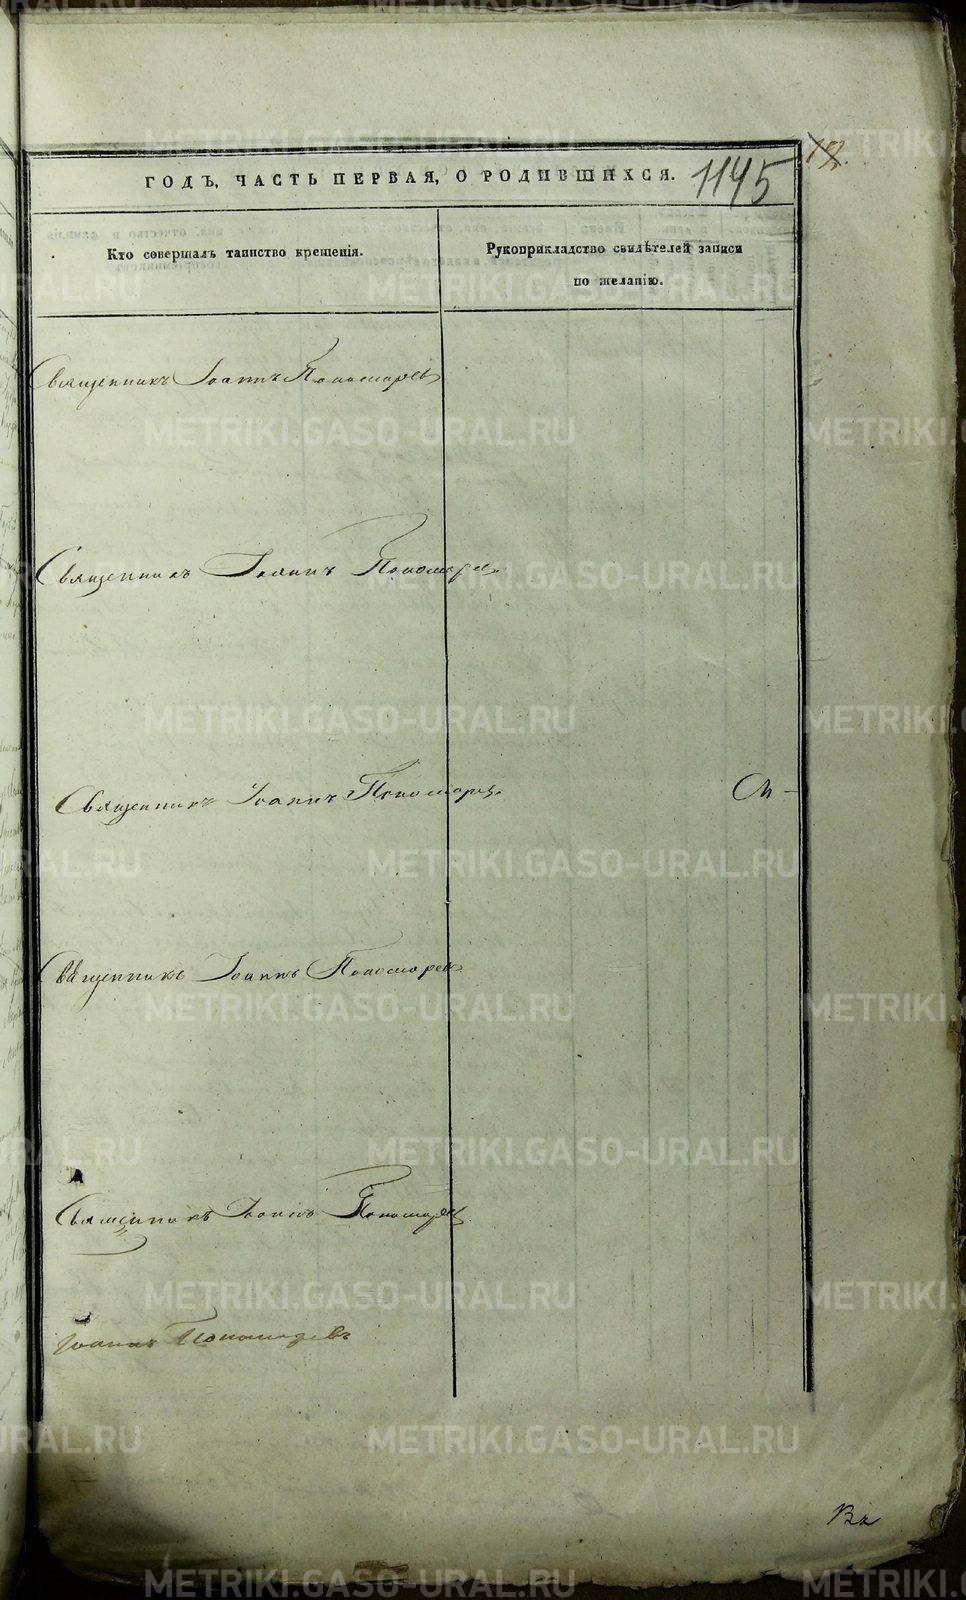 ГОДЪ, ЧАСТЬ ПЕРВАЯ, О РОДИВШИХСЯ. 1145
Кто совершалъ таинство крещенія.
Рукоприкладство свидѣтелей записи
по желанію.
Священникъ Іоаннъ Пономаревъ
Священникъ Іоаннъ Пономаревъ
Священникъ Іоаннъ Пономаревъ
Священникъ Іоаннъ Пономаревъ
Священникъ Іоаннъ Пономаревъ
Іоаннъ Пономаревъ
METRIKI.GASO-URAL.RU